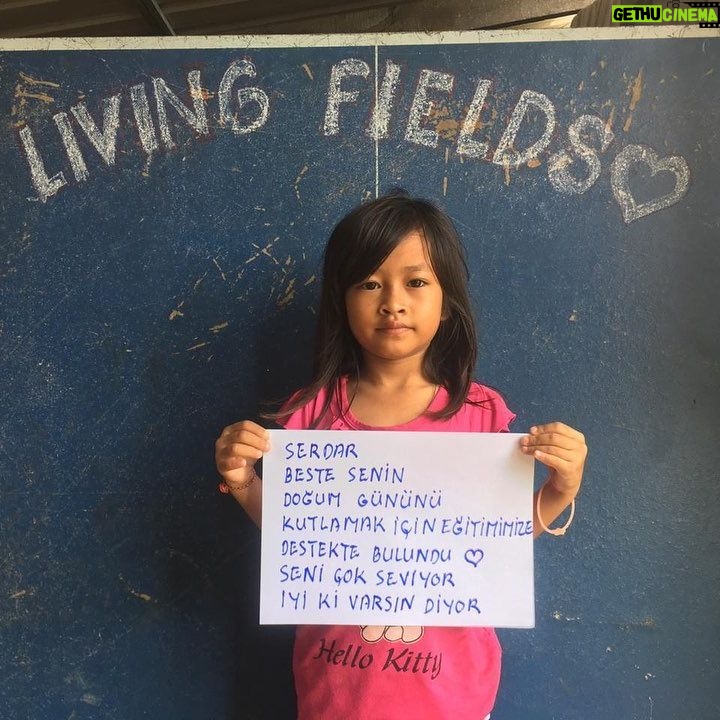 GETHUCINEMA
LIVING FIELDS
SERDAR
BESTE SENİN
DOĞUM GÜNÜNÜ
KUTLAMAK İÇİN EĞİTİMİMİZE
DESTEKTE BULUNDU ♡
SENİ ÇOK SEVİYOR
İYİ Kİ VARSIN DİYOR
Hello Kitty